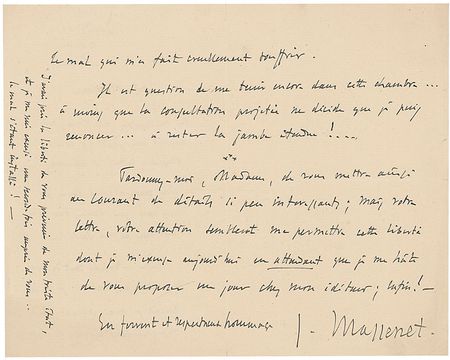 le mal qui m'a fait cruellement souffrir.
Il est question de me tenir encore dans cette chambre ...
à moins que la consultation projetée ne décide que je puis
renoncer ... à rester la jambe étendue ! ...
Pardonnez-moi, Madame, de vous mettre ainsi
au courant de détails si peu intéressants ; mais votre
lettre, votre attention semblent me permettre cette liberté
dont je m'excuse aujourd'hui en attendant que je me hâte
de vous proposer un jour chez mon éditeur ; enfin ! —
En fervent et respectueux hommage
J. Massenet.
J'avais pris la liberté de vous prévenir de mon triste état,
et je me suis excusé auprès de vous ..
le mal s'étant installé ! —